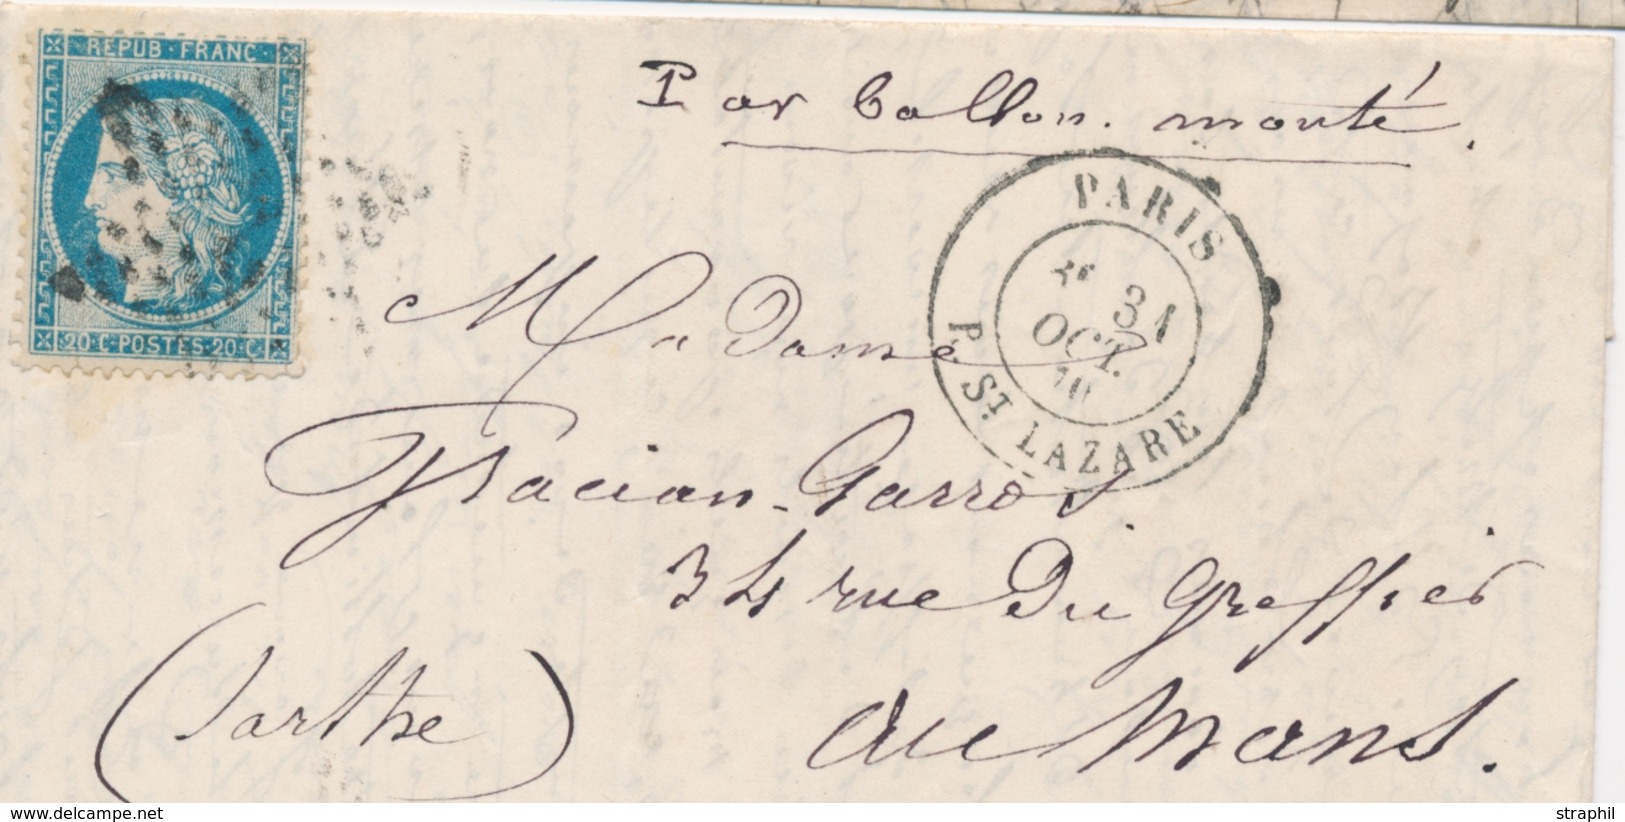 REPUB · FRANC ·
20 C · POSTES · 20 C ·
Par ballon. monté.
PARIS
31
OCT.
70
P. ST. LAZARE
Madame
Gacian-Garros.
34 rue du Greffier
au Mans.
(Sarthe)
www.delcampe.net
straphil